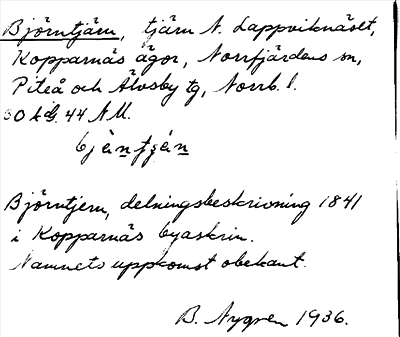 Björntjärn, tjärn N. Lappviknäset,
Kopparnäs ägor, Norrfjärdens sn,
Piteå och Älvsby tg, Norrb. l.
44 NU.
Björntjern, delningsbeskrivning 1841
i Kopparnäs byaskrin.
Namnets uppkomst obekant.
B. Nygren 1936.